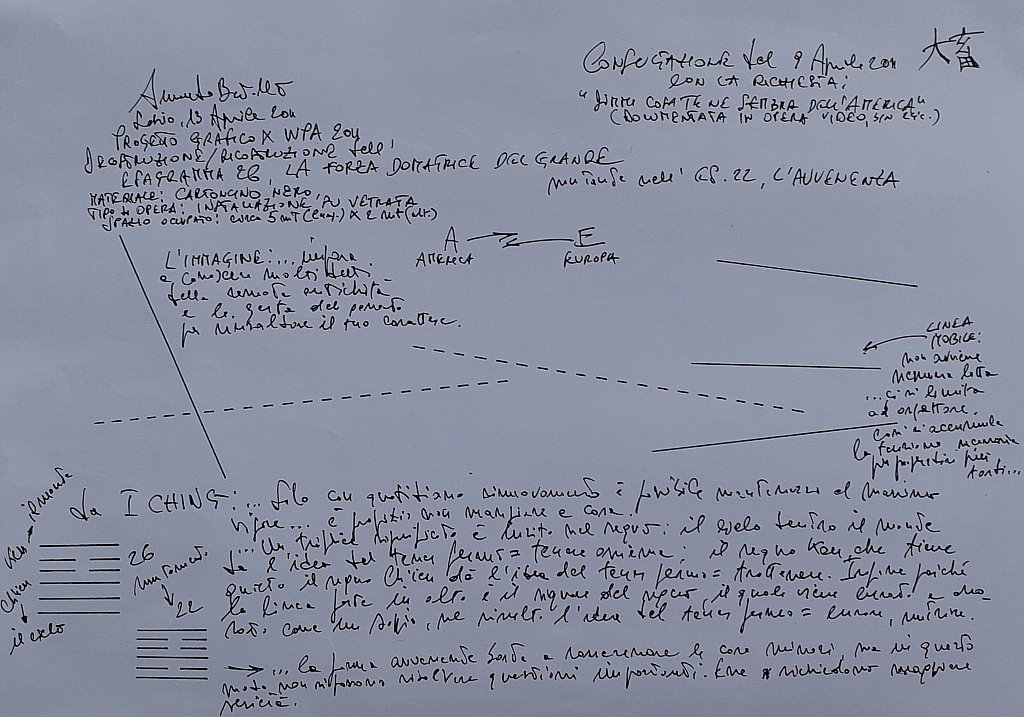 Consultazione del 9 Aprile 2011
大畜
con la richiesta:
"Dimmi cosa te ne sembra dell'America"
(documentata in opera video,
13 Aprile 2011
Progetto grafico x WPA 2011
Destruzione/ricostruzione dell'
Esagramma 26, La forza domatrice del grande
mutando nell' Es. 22, L'Avvenenza
Materiale: cartoncino nero
Tipo di opera: installazione su vetrata
Spazio occupato: circa 5 mt (lung.) x 2 mt (alt.)
A E
America Europa
L'immagine: ... impara
a conoscere molti detti
della remota antichità
e le gesta del passato
per rinsaldare il tuo carattere.
Linea
mobile:
non avviene
nessuna lotta
... ci si limita
ad aspettare.
Così si accumula
la tensione necessaria
per
Da I Ching: ... Solo con quotidiano rinnovamento è possibile mantenersi al massimo
vigore ... è propizio non mangiare a casa.
... Un triplice significato è insito nel segno: il cielo dentro il monte
dà l'idea del tener fermo = tenere assieme; il segno Ken, che tiene
quieto il segno Chien dà l'idea del tener fermo = trattenere. Infine poiché
la linea forte in alto è il signore del segno, il quale viene onorato e
come un saggio, ne risulta l'idea del tener fermo = curare, nutrire.
Ken il monte
Chien il cielo
26
mutamento
22
... la forma avvenente basta a rasserenare le cose minori, ma in questo
modo non si possono risolvere questioni importanti. Esse richiedono maggiore
serietà.